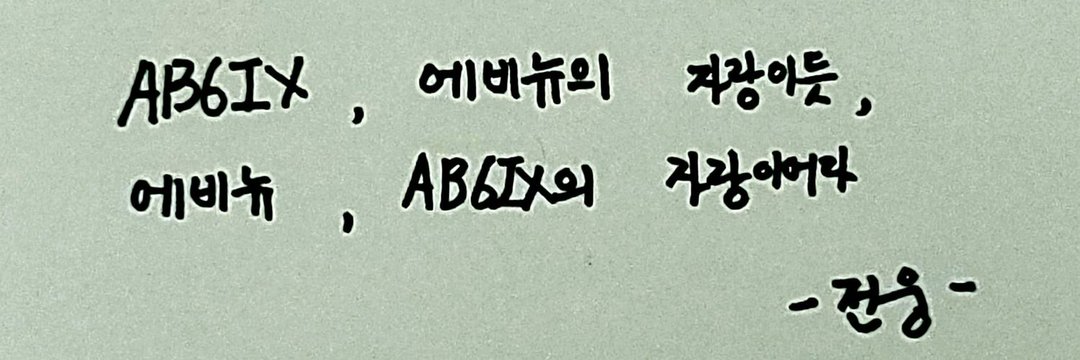 AB6IX, 에비뉴의 자랑이듯,
에비뉴, AB6IX의 자랑이어라
-전웅-